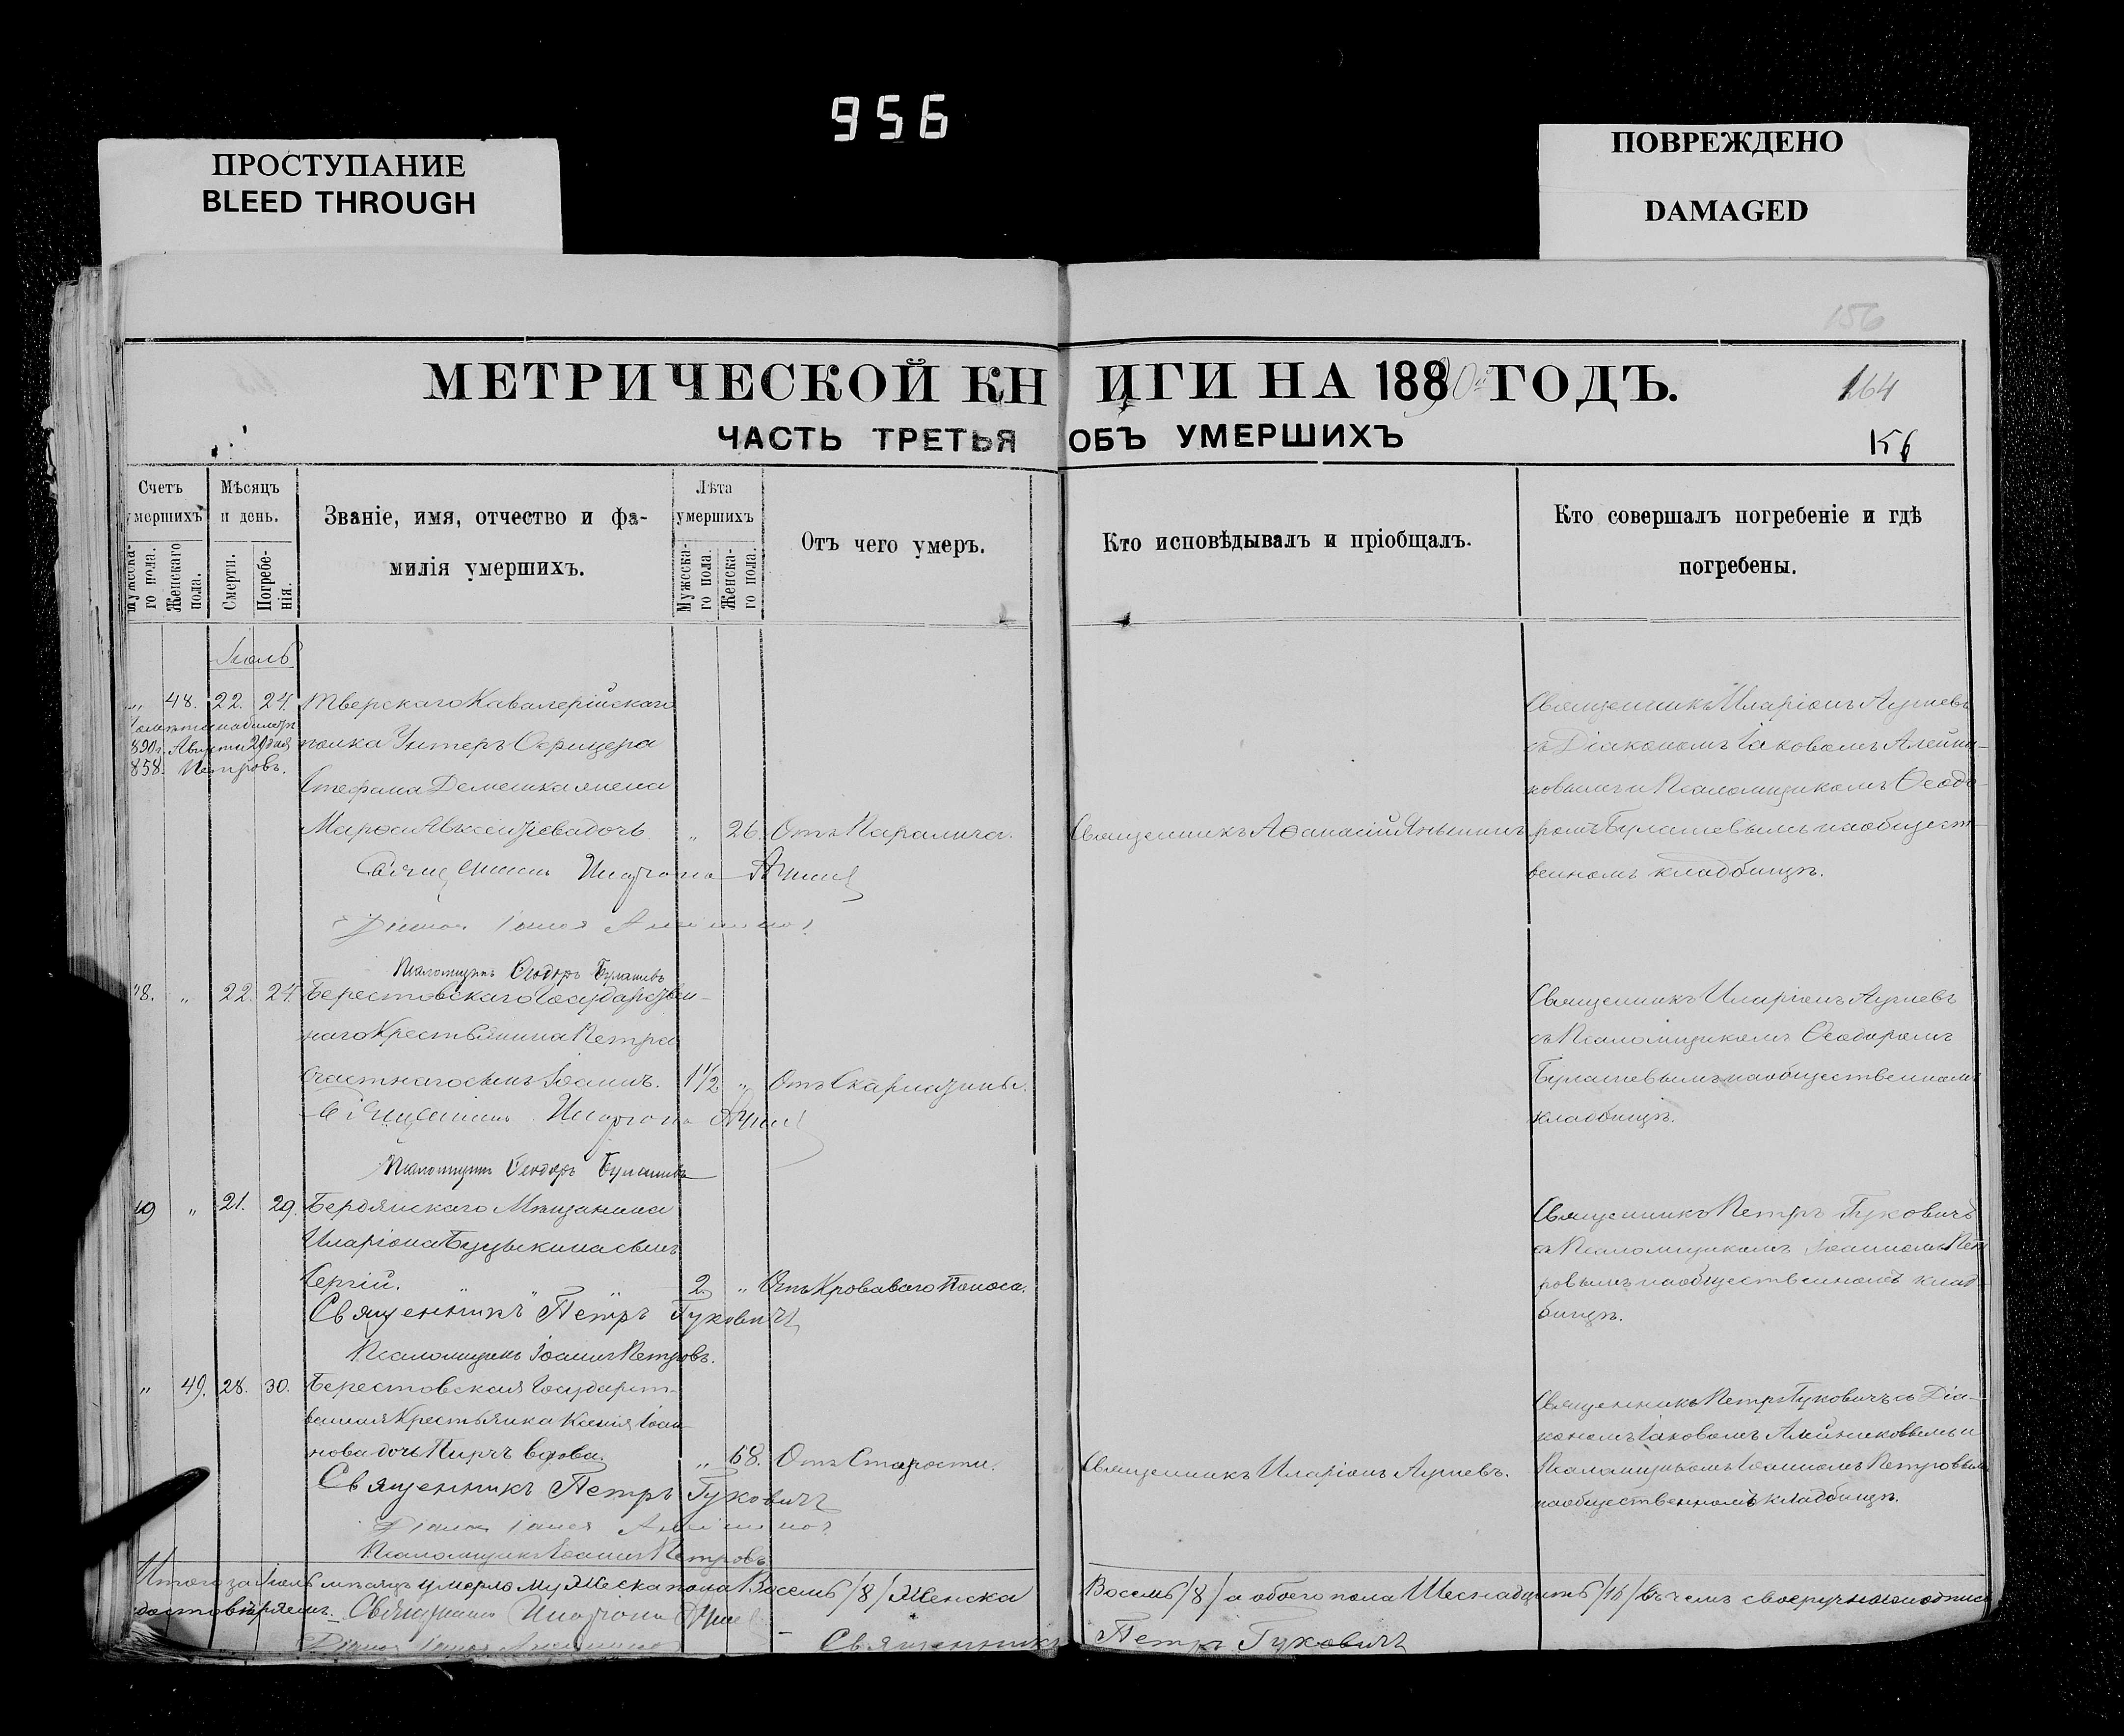 956
ПРОСТУПАНИЕ
BLEED THROUGH
ПОВРЕЖДЕНО
DAMAGED
156
МЕТРИЧЕСКОЙ КНИГИ НА 1890й ГОДЪ.
164
ЧАСТЬ ТРЕТЬЯ ОБЪ УМЕРШИХЪ
156
Счетъ умершихъ
Мужеска-го пола.
Женскаго пола.
Мѣсяцъ и день.
Смерти.
Погребе-нія.
Званіе, имя, отчество и фа-
милія умершихъ.
Лѣта умершихъ
Мужеска-го пола.
Женска-го пола.
Отъ чего умеръ.
Кто исповѣдывалъ и пріобщалъ.
Кто совершалъ погребеніе и гдѣ
погребены.
Іюль
„ 48. 22. 24. Тверскаго Кавалерійскаго
890г. Августа 29 дня
858. Петровъ.
полка Унтеръ Офицера
Стефана Демешка жена
Марѳа дочь „ 26. Отъ Паралича.
Священникъ Аѳанасій
Священникъ Иларіонъ
съ Діакономъ Іаковомъ Алейни-
ковымъ и Псаломщикомъ Ѳеодо-
ромъ Булашевымъ на общест-
венномъ кладбищѣ.
Священникъ Иларіонъ
Псаломщикъ Ѳеодоръ Булашевъ
48. „ 22. 24. Берестовскаго Государствен-
наго Крестьянина Петра
Счастнаго сынъ Іоаннъ. 1 1/2 „ Отъ Скарлатины.
Священникъ Иларіонъ
съ Псаломщикомъ Ѳеодоромъ
Булашевымъ на общественномъ
кладбищѣ.
Священникъ Иларіонъ
Псаломщикъ Ѳеодоръ Булашевъ
49 „ 21. 29. Бердянскаго Мѣщанина
Иларіона сынъ
Сергій. „ „ „ 2. „ Отъ Кроваваго Поноса.
Священникъ Петръ Гуковичъ
съ Псаломщикомъ Іоанномъ Пет
ровымъ на общественномъ клад-
бищѣ.
Священникъ Петръ Гуковичъ
Псаломщикъ Іоаннъ Петровъ.
„ 49. 28. 30. Берестовская Государст-
венная Крестьянка Ксенія Іоан-
нова дочь вдова. „ 68. Отъ Старости.
Священникъ Иларіонъ
Священникъ Петръ Гуковичъ съ Діа-
кономъ Іаковомъ Алейниковымъ и
Псаломщикомъ Іоанномъ Петровымъ
на общественномъ кладбищѣ.
Священникъ Петръ Гуковичъ
Псаломщикъ Іоаннъ Петровъ
Итого за Іюль мѣсяцъ умерло мужеска пола Восемь /8/ женска Восемь /8/ а обоего пола Шеснадцать /16/ въ чемъ своеручною подписью
удостовѣряемъ. Священникъ Иларіонъ
Священникъ Петръ Гуковичъ